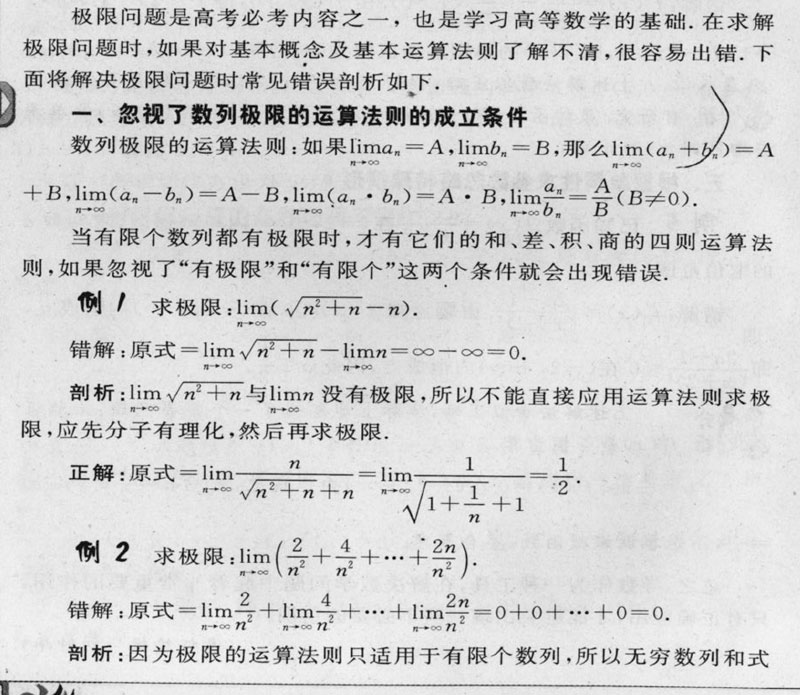 极限问题是高考必考内容之一，也是学习高等数学的基础.在求解
极限问题时,如果对基本概念及基本运算法则了解不清,很容易出错.下
面将解决极限问题时常见错误剖析如下.
一、忽视了数列极限的运算法则的成立条件
数列极限的运算法则:如果lim_{n→∞}a_n=A,lim_{n→∞}b_n=B,那么lim_{n→∞}(a_n+b_n)=A
+B,lim_{n→∞}(a_n-b_n)=A-B,lim_{n→∞}(a_n·b_n)=A·B,lim_{n→∞}a_n/b_n=A/B(B≠0).
当有限个数列都有极限时,才有它们的和、差、积、商的四则运算法
则,如果忽视了“有极限”和“有限个”这两个条件就会出现错误.
例1 求极限:lim_{n→∞}(√(n²+n)-n).
错解:原式=lim_{n→∞}√(n²+n)-lim_{n→∞}n=∞-∞=0.
剖析:lim_{n→∞}√(n²+n)与lim_{n→∞}n没有极限,所以不能直接应用运算法则求极
限,应先分子有理化,然后再求极限.
正解:原式=lim_{n→∞}n/(√(n²+n)+n)=lim_{n→∞}1/(√(1+1/n)+1)=1/2.
例2 求极限:lim_{n→∞}(2/n²+4/n²+···+2n/n²).
错解:原式=lim_{n→∞}2/n²+lim_{n→∞}4/n²+···+lim_{n→∞}2n/n²=0+0+···+0=0.
剖析:因为极限的运算法则只适用于有限个数列,所以无穷数列和式